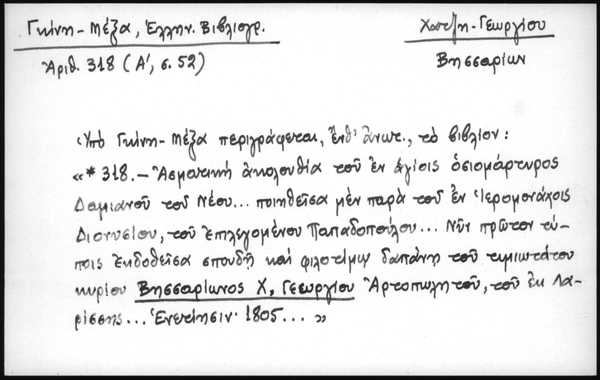 Γκίνη - Μέξα, Ἑλλην. Βιβλιογρ.
Χατζῆ - Γεωργίου
Ἀριθ. 318 (Α', σ. 52)
Βησσαρίων
Ὑπὸ Γκίνη - Μέξα περιγράφεται, ἔνθ' ἀνωτ., τὸ βιβλίον:
«* 318. — Ἀσματικὴ ἀκολουθία τοῦ ἐν ἁγίοις ὁσιομάρτυρος
Δαμιανοῦ τοῦ Νέου... ποιηθεῖσα μὲν παρὰ τοῦ ἐν Ἱερομονάχοις
Διονυσίου, τοῦ ἐπιλεγομένου Παπαδοπούλου... Νῦν πρῶτον τύ-
ποις ἐκδοθεῖσα σπουδῇ καὶ φιλοτίμῳ δαπάνῃ τοῦ τιμιωτάτου
κυρίου Βησσαρίωνος Χ, Γεωργίου Ἀρτοπωλητοῦ, τοῦ ἐκ Λα-
ρίσσης... Ἐνετίησιν· 1805... »